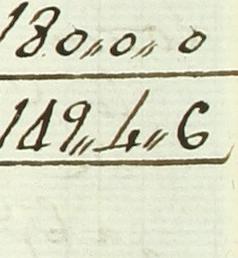 180,,0,,0
149,,4,,6